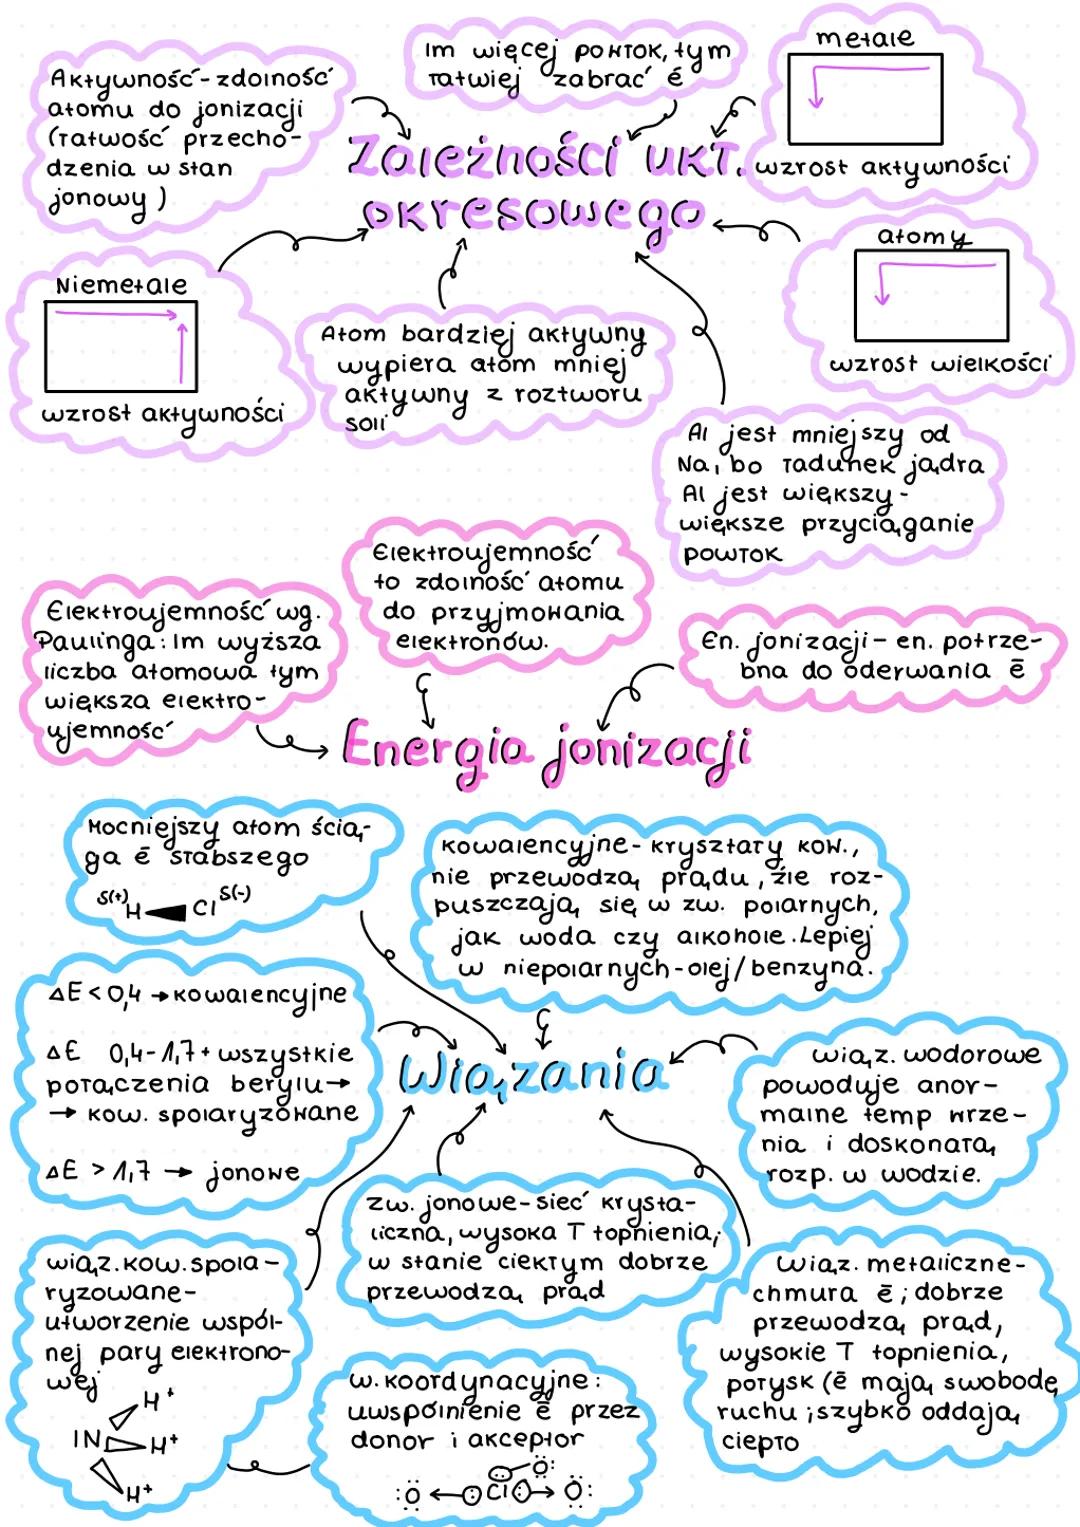 Aktywność - zdolność
atomu do jonizacji
(łatwość przecho-
dzenia w stan
jonowy)
Im więcej powłok, tym
łatwiej zabrać ē
metale
wzrost aktywności
Zależności ukł.
okresowego
atomy
wzrost wielkości
Niemetale
wzrost aktywności
Atom bardziej aktywny
wypiera atom mniej
aktywny z roztworu
soli
Al jest mniejszy od
Na, bo ładunek jądra
Al jest większy -
większe przyciąganie
powłok
Elektroujemność
to zdolność atomu
do przyjmowania
elektronów.
Elektroujemność wg.
Paulinga: Im wyższa
liczba atomowa tym
większa elektro-
ujemność
En. jonizacji - en. potrze-
bna do oderwania ē
Energia jonizacji
Mocniejszy atom ścią-
ga ē słabszego
δ(+)H Cl δ(-)
kowalencyjne - kryształy kow.,
nie przewodzą prądu, źle roz-
puszczają się w zw. polarnych,
jak woda czy alkohole. Lepiej
w niepolarnych - olej/benzyna.
ΔE < 0,4 → kowalencyjne
ΔE 0,4 - 1,7 + wszystkie
połączenia berylu →
→ kow. spolaryzowane
ΔE > 1,7 → jonowe
Wiązania
wiąz. wodorowe
powoduje anor-
malne temp wrze-
nia i doskonałą
rozp. w wodzie.
zw. jonowe - sieć krysta-
liczna, wysoka T topnienia,
w stanie ciekłym dobrze
przewodzą prąd
wiąz. kow. spola-
ryzowane -
utworzenie wspól-
nej pary elektrono-
wej
H+
IN H+
H+
w. koordynacyjne:
uwspólnienie ē przez
donor i akceptor
O
O ← Cl → O
Wiąz. metaliczne -
chmura ē; dobrze
przewodzą prąd,
wysokie T topnienia,
połysk (ē mają swobodę
ruchu; szybko oddają
ciepło